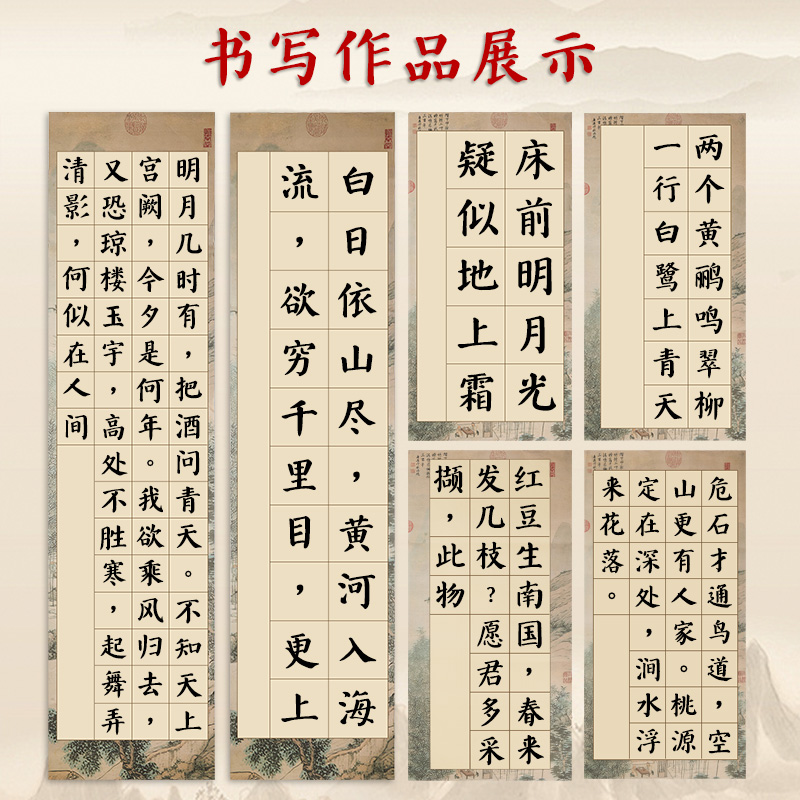 书写作品展示
明月几时有，把酒问青天。不知天上
宫阙，今夕是何年。我欲乘风归去，
又恐琼楼玉宇，高处不胜寒，起舞弄
清影，何似在人间
白日依山尽，黄河入海
流，欲穷千里目，更上
床前明月光
疑似地上霜
两个黄鹂鸣翠柳
一行白鹭上青天
红豆生南国，春来
发几枝？愿君多采
撷，此物
危石才通鸟道，空
山更有人家。桃源
定在深处，涧水浮
来花落。